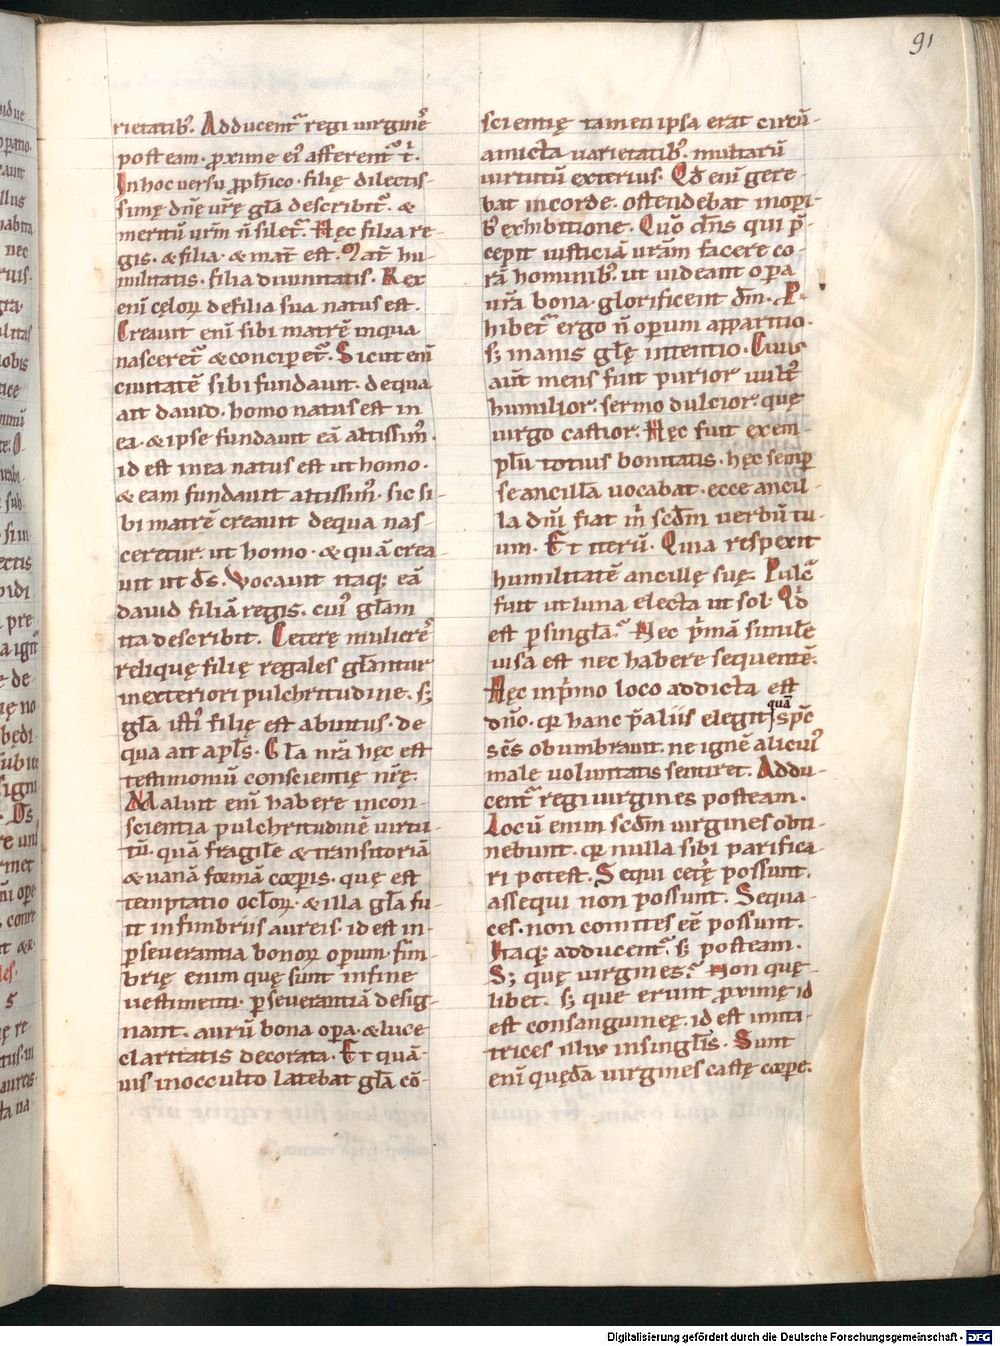 91
rietatib᷒. Adducent᷑ regi uirgine᷒
post eam. p̱xime ei᷒ afferent᷑ t̄.
In hoc uersu p̱ph̄ico. filię dilectis-
simę dn̄ę ur̄ę gl̄a describit᷑. &
meritū ur̄m n̄ silet᷑. Hęc filia re-
gis. & filia. & mat̄ est. Mat̄ hu-
militatis. filia diuinitatis. Rex
eni celoꝝ de filia sua natus est.
Creauit eni sibi matrē in qua
nasceret᷑ & conciperet᷑. Sicut eni
ciuitatē sibi fundauit. de qua
ait dauid. homo natus est in
ea. & ipse fundauit eā altissim᷒.
id est in ea natus est ut homo.
& eam fundauit altissim᷒. sic si-
bi matrē creauit de qua nas-
ceretur. ut homo. & quā crea-
uit ut ds̄. Vocauit itaq; eā
dauid filiā regis. cui᷒ gl̄am
ita describit. Ceterę muliere᷒
reliquę filię regales gl̄antur
in exteriori pulchritudine. s;
gl̄a isti᷒ filię est ab intus. de
qua ait apl̄s. Gl̄a nr̄a hęc est
testimoniū conscientię nr̄ę.
Maluit eni habere in con-
scientia pulchritudinē uirtu-
tū. quā fragile & transitoriā
& uanā formā corporis. quę est
temptatio ocl̄oꝝ. & illa gl̄a fu-
it in fimbriis aureis. id est in
ꝑseuerantia bonoꝝ operum. fim-
brię enim quę sunt in fine
uestimenti. ꝑseuerantiā desig-
nant. aurū bona opa. & luce
claritatis decorata. Et quā-
uis in occulto latebat gl̄a cō-
scientię tamen ipsa erat circū-
amicta uarietatib᷒. multarū
uirtutū exterius. Qd̄ eni gere-
bat in corde. ostendebat in opi-
b᷒ exhibitione. Quō dn̄s qui p̄-
cepit iusticiā ur̄am facere co-
rā hominib᷒. ut uideant opa
ur̄a bona. glorificent dm̄. P̱-
hibet᷑ ergo n̄ operum apparitio.
s; inanis gl̄ę intentio. Cuius
aūt mens fuit purior uult᷒
humilior. sermo dulcior. quę
uirgo castior. Hęc fuit exem-
pl̄ū totius bonitatis. hęc semp̱
se ancillā uocabat. ecce ancil-
la dn̄i fiat m̄ scd̄m uerbū tu-
um. Et iterū. Quia respexit
humilitatē ancillę suę. Pulc᷑
fuit ut luna electa ut sol. Qd̄
est p singl̄a. Nec p̄mā simile
uisa est nec habere sequentē.
Hęc in p̄mo loco addicta est
dn̄o. qr hanc p̄ aliis elegit quā sp̄c
sc̄s obumbrauit. ne ignē alicui᷒
male uoluntatis sentiret. Addu-
cent᷑ regi uirgines post eam.
Locū enim scd̄m uirgines obti-
nebunt. qr nulla sibi parifica-
ri potest. Sequi cet᷑ę possunt.
assequi non possunt. Sequa-
ces. non comites ēe possunt.
Itaq; adducent᷑. s; post eam.
S; quę uirgines. Non quę-
libet. s; que erunt p̱ximę id
est consanguineę. id est imita-
trices illi᷒ in singl̄is. Sunt
eni quędā uirgines castę corpe.
Digitalisierung gefördert durch die Deutsche Forschungsgemeinschaft - DFG